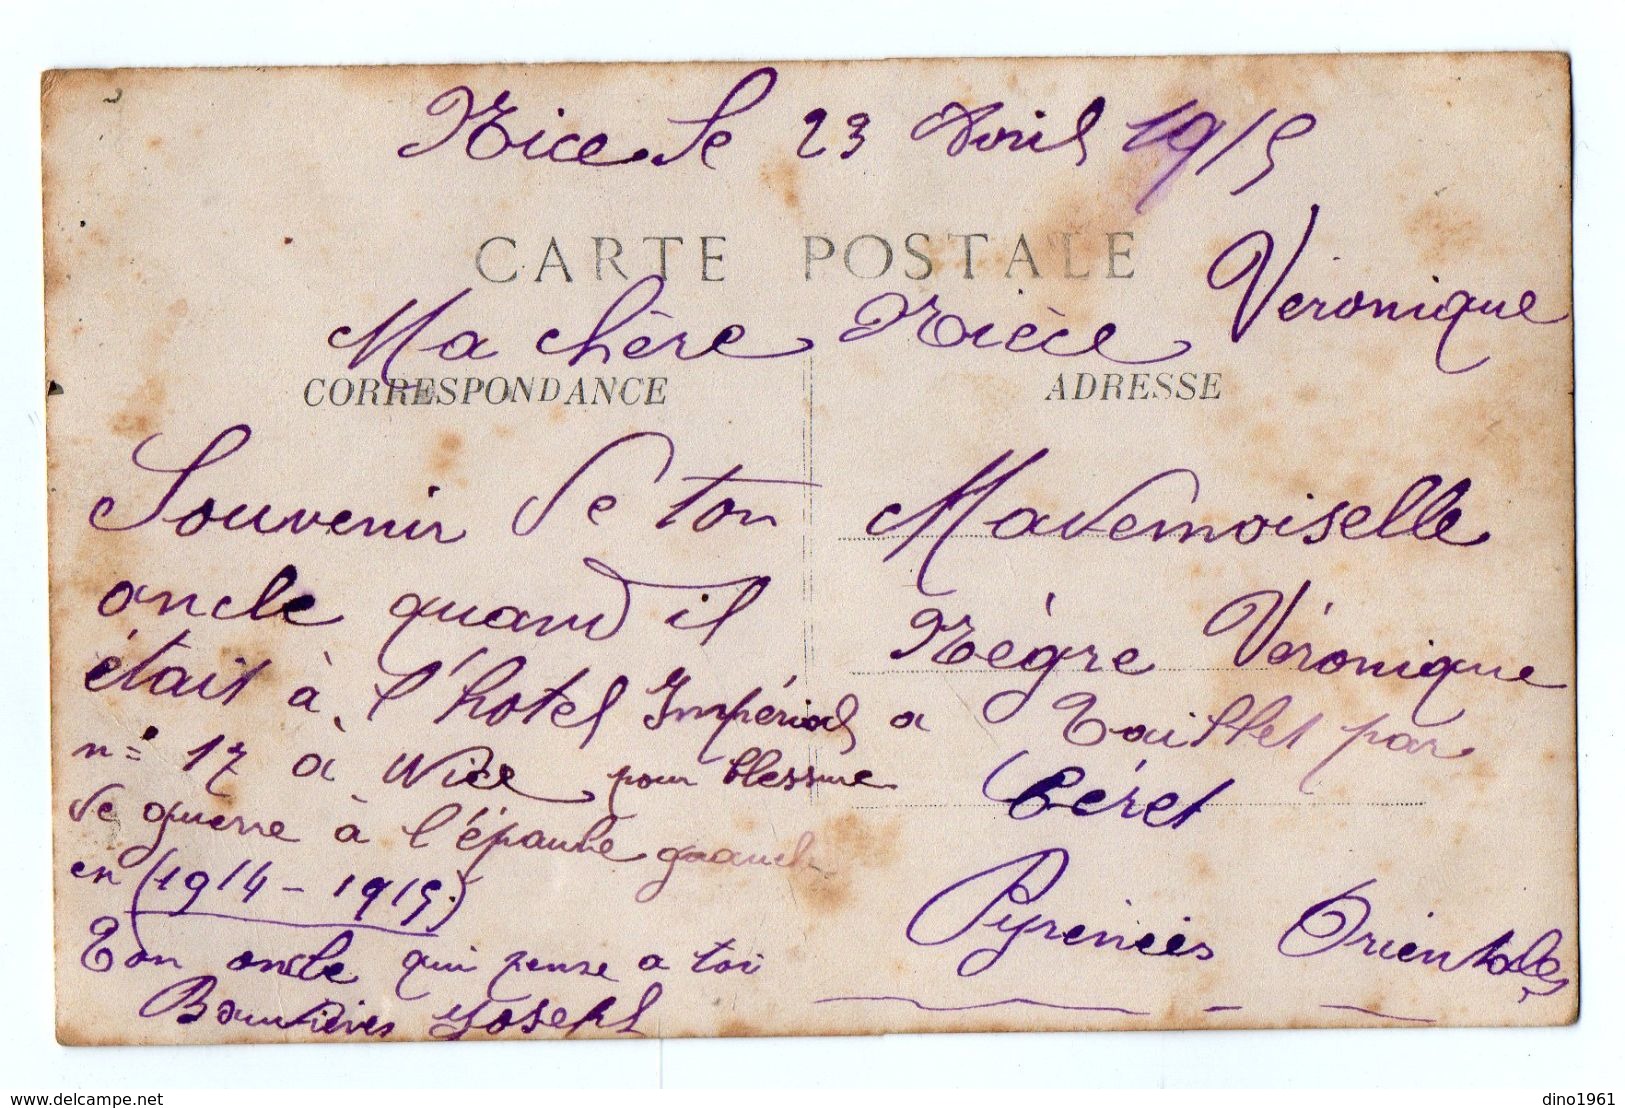 Nice le 23 Avril 1915
CARTE POSTALE
Ma chère Nièce Véronique
CORRESPONDANCE
ADRESSE
Souvenir de ton
oncle quand il
était à l'hotel Impérial
n° 17 à Nice pour blessure
de guerre à l'épaule gauche
en (1914-1915)
Ton oncle qui pense a toi
Joseph
Mademoiselle
Nègre Véronique
a Taillet par
Céret
Pyrénées Orientales
www.delcampe.net
dino1961